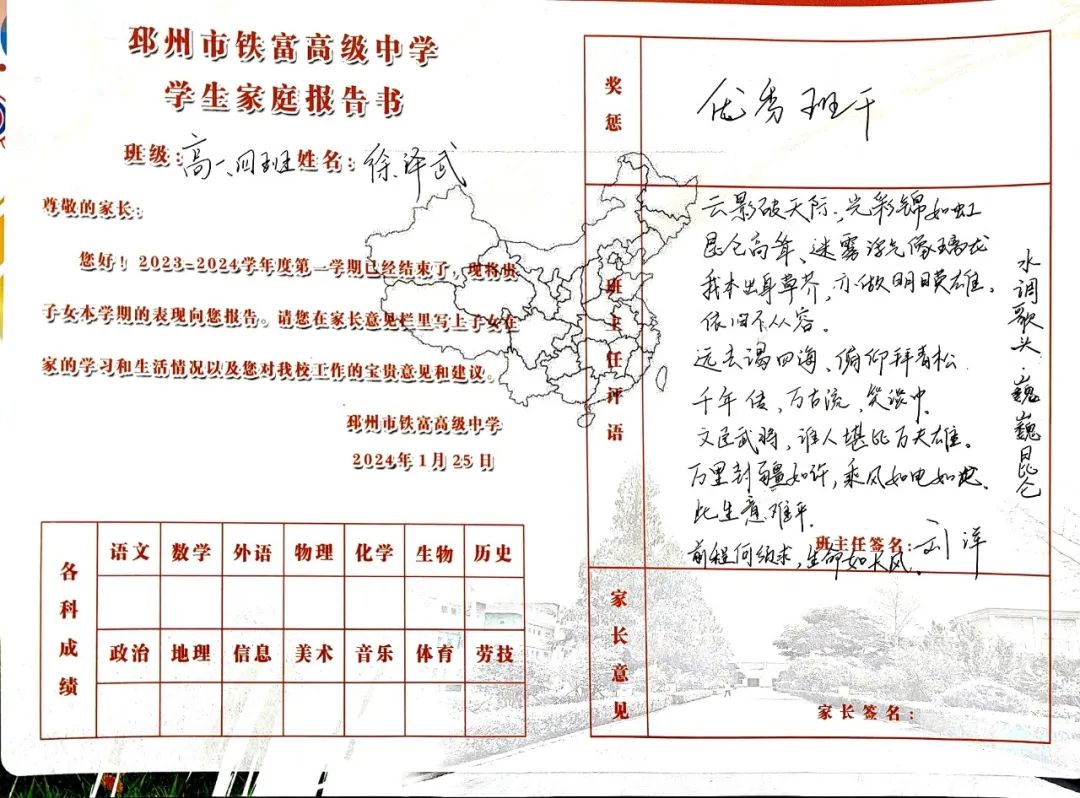 邳州市铁富高级中学
学生家庭报告书
班级:高一、四班 姓名:徐泽武
尊敬的家长:
您好!2023-2024学年度第一学期已经结束了,现将贵
子女本学期的表现向您报告。请您在家长意见栏里写上子女在
家的学习和生活情况以及您对我校工作的宝贵意见和建议。
邳州市铁富高级中学
2024年1月25日
各科成绩
语文 数学 外语 物理 化学 生物 历史
政治 地理 信息 美术 音乐 体育 劳技
奖惩
优秀班干
班主任评语
水调歌头·巍巍昆仑
云影破天际,光彩锦如虹
昆仑高耸、迷雾浮光像龙
我本出身草芥,亦做明睽雄。
依旧不从容。
远去谒四海、俯仰拜青松
千年传,万古流,笑谈中.
文臣武将,谁人堪比万夫雄。
万里封疆如许,乘风如电如
此生意难平.
前程何须求,生命如长风。
班主任签名:刘洋
家长意见
家长签名: